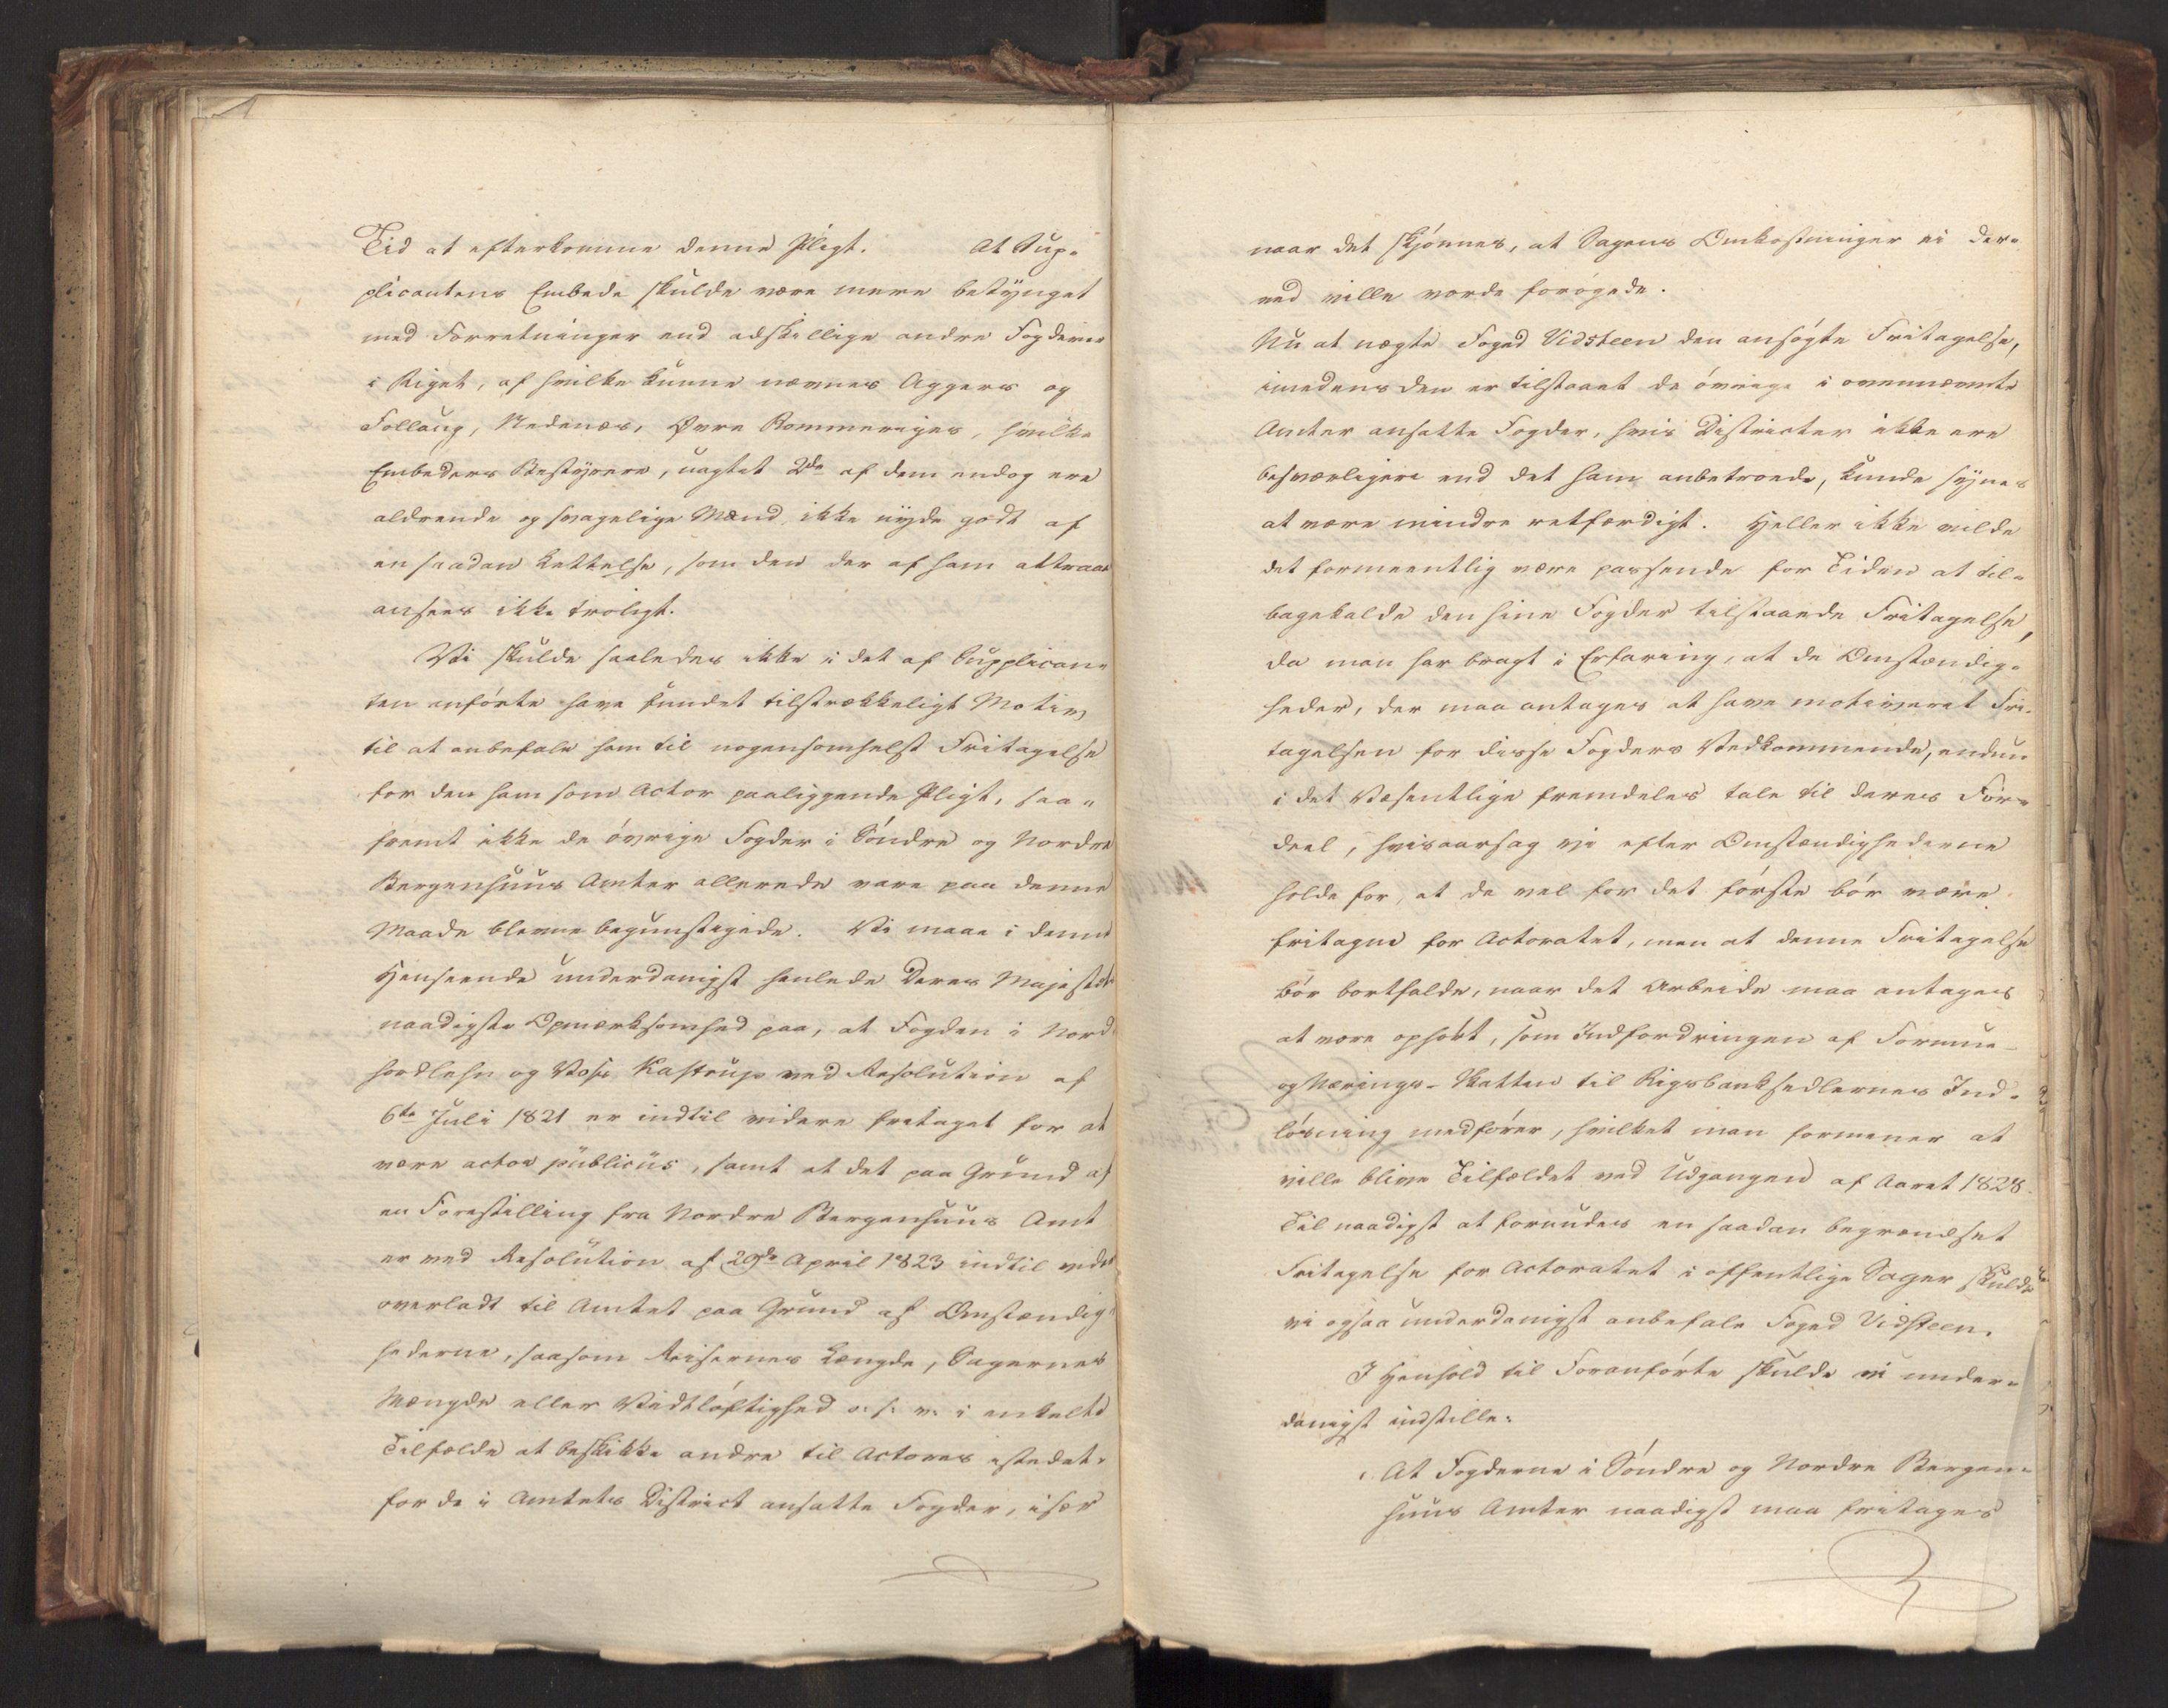 Tid at efterkomme denne Pligt. At Sup-
plicantens Embede skulde være mere betynget
med Forretninger end adskillige andre Fogderier
i Riget, af hvilke kunne nævnes Aggers og
Follaug, Nedenæs, Øvre Rommeriges, hvilke
Embeders Bestyrere, uagtet 2de af dem endog ere
aldrende og svagelige Mænd, ikke nyde godt af
en saadan Lettelse, som den der af ham attraaes
ansees ikke troligt.
Vi skulde saaledes ikke i det af Supplican-
ten anførte have fundet tilstrækkeligt Motiv
til at anbefale ham til nogensomhelst Fritagelse
for den ham som Actor paaliggende Pligt, saa-
fremt ikke de øvrige Fogder i Søndre og Nordre
Bergenhuus Amter allerede vare paa denne
Maade blevne begunstigede. Vi maae i denne
Henseende underdanigst henlede Deres Majestæts
naadigste Opmærksomhed paa, at Fogden i Nord-
hordlehn og Voss, Kastrup ved Resolution af
6te Juli 1821 er indtil videre fritaget for at
være actor publicus, samt at det paa Grund af
en Forestilling fra Nordre Bergenhuus Amt
er ved Resolution af 29de April 1823 indtil videre
overladt til Amtet paa Grund af Omstændig-
hederne, saasom Reisernes Længde, Sagernes
Mængde eller Vidtløftighed o: s: v: i enkelte
Tilfælde at beskikke andre til Actores istedet-
for de i Amtets District ansatte Fogder, især
naar det skjønnes, at Sagens Omkostninger ei der-
ved ville vorde forøgede.
Nu at nægte Foged Vidsteen den ansøgte Fritagelse,
imedens den er tilstaaet de øvrige i ovennævnte
Amter ansatte Fogder, hvis Districter ikke ere
besværligere end det ham anbetroede, kunde synes
at være mindre retfærdigt. Heller ikke vilde
det formeentlig være passende for Tiden at til-
bagekalde den hine Fogder tilstaaede Fritagelse,
da man har bragt i Erfaring, at de Omstændig-
heder, der maa antages at have motiveret Fri-
tagelsen for disse Fogders Vedkommende, endnu
i det Væsentlige fremdeles tale til deres For-
deel, hvisaarsag vi efter Omstændighederne
holde for, at de vel for det første bør være
fritagne for Actoratet, men at denne Fritagelse
bør bortfalde, naar det Arbeide maa antages
at være ophørt, som Indfordringen af Formue-
og Nærings-Skatten til Rigsbanksedlernes Ind-
løsning medfører, hvilket man formener at
ville blive Tilfældet ved Udgangen af Aaret 1828.
Til naadigst at forundes en saadan begrændset
Fritagelse for Actoratet i offentlige Sager skulde
vi ogsaa underdanigst anbefale Foged Vidsteen.
I Henhold til Foranførte skulde vi under-
danigst indstille:
At Fogderne i Søndre og Nordre Bergen-
huus Amter naadigst maa fritages